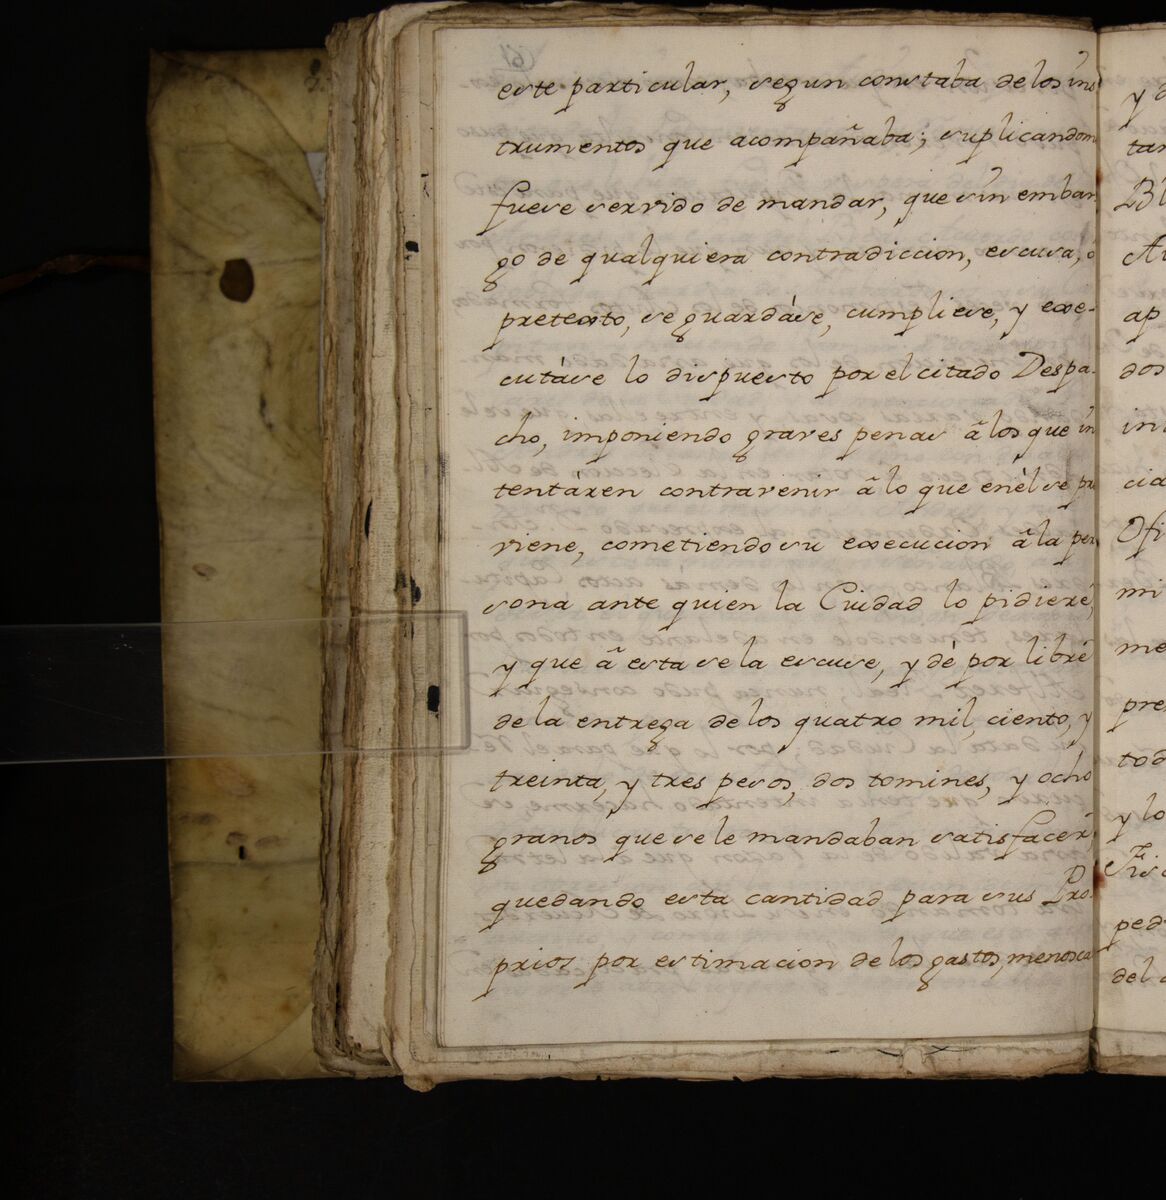 este particular, segun constaba de los ins
trumentos que acompañaba; suplicandom
fuese servido de mandar, que sin embar
go de qualquiera contradiccion, escusa, ó
pretexto, se guardáse, cumpliese, y exe-
cutáse lo dispuesto por el citado Despa-
cho, imponiendo graves penas â los que in
tentáren contravenir â lo que en él se pre
viene, cometiendo su execucion â la per
sona ante quien la Ciudad lo pidiere,
y que â esta se la escuse, y dé por libre
de la entrega de los quatro mil, ciento, y
treinta, y tres pesos, dos tomines, y ocho
granos que se le mandaban satisfacer,
quedando esta cantidad para sus Pro-
prios por estimacion de los gastos, menosca
tar
ap
dos
cia
Ofi
mi
me
pre
tod
y lo
Fisc
ped
del